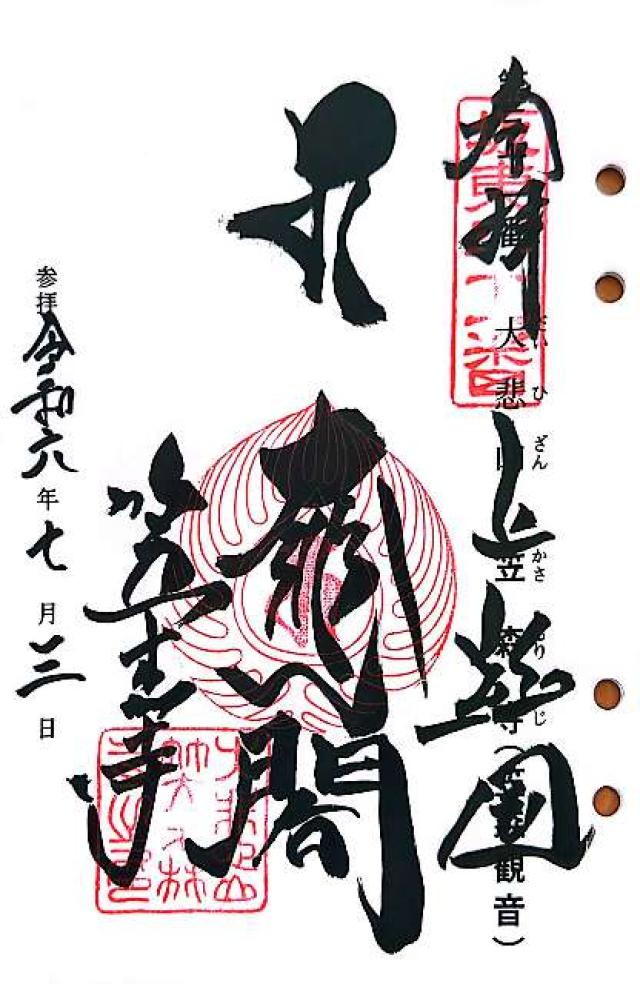 奉拝
坂東三十一番
大悲山 笠森寺（笠森観音）
たいひざん かさもりじ
上総国
大悲閣
笠森寺
参拝 令和六年七月三日